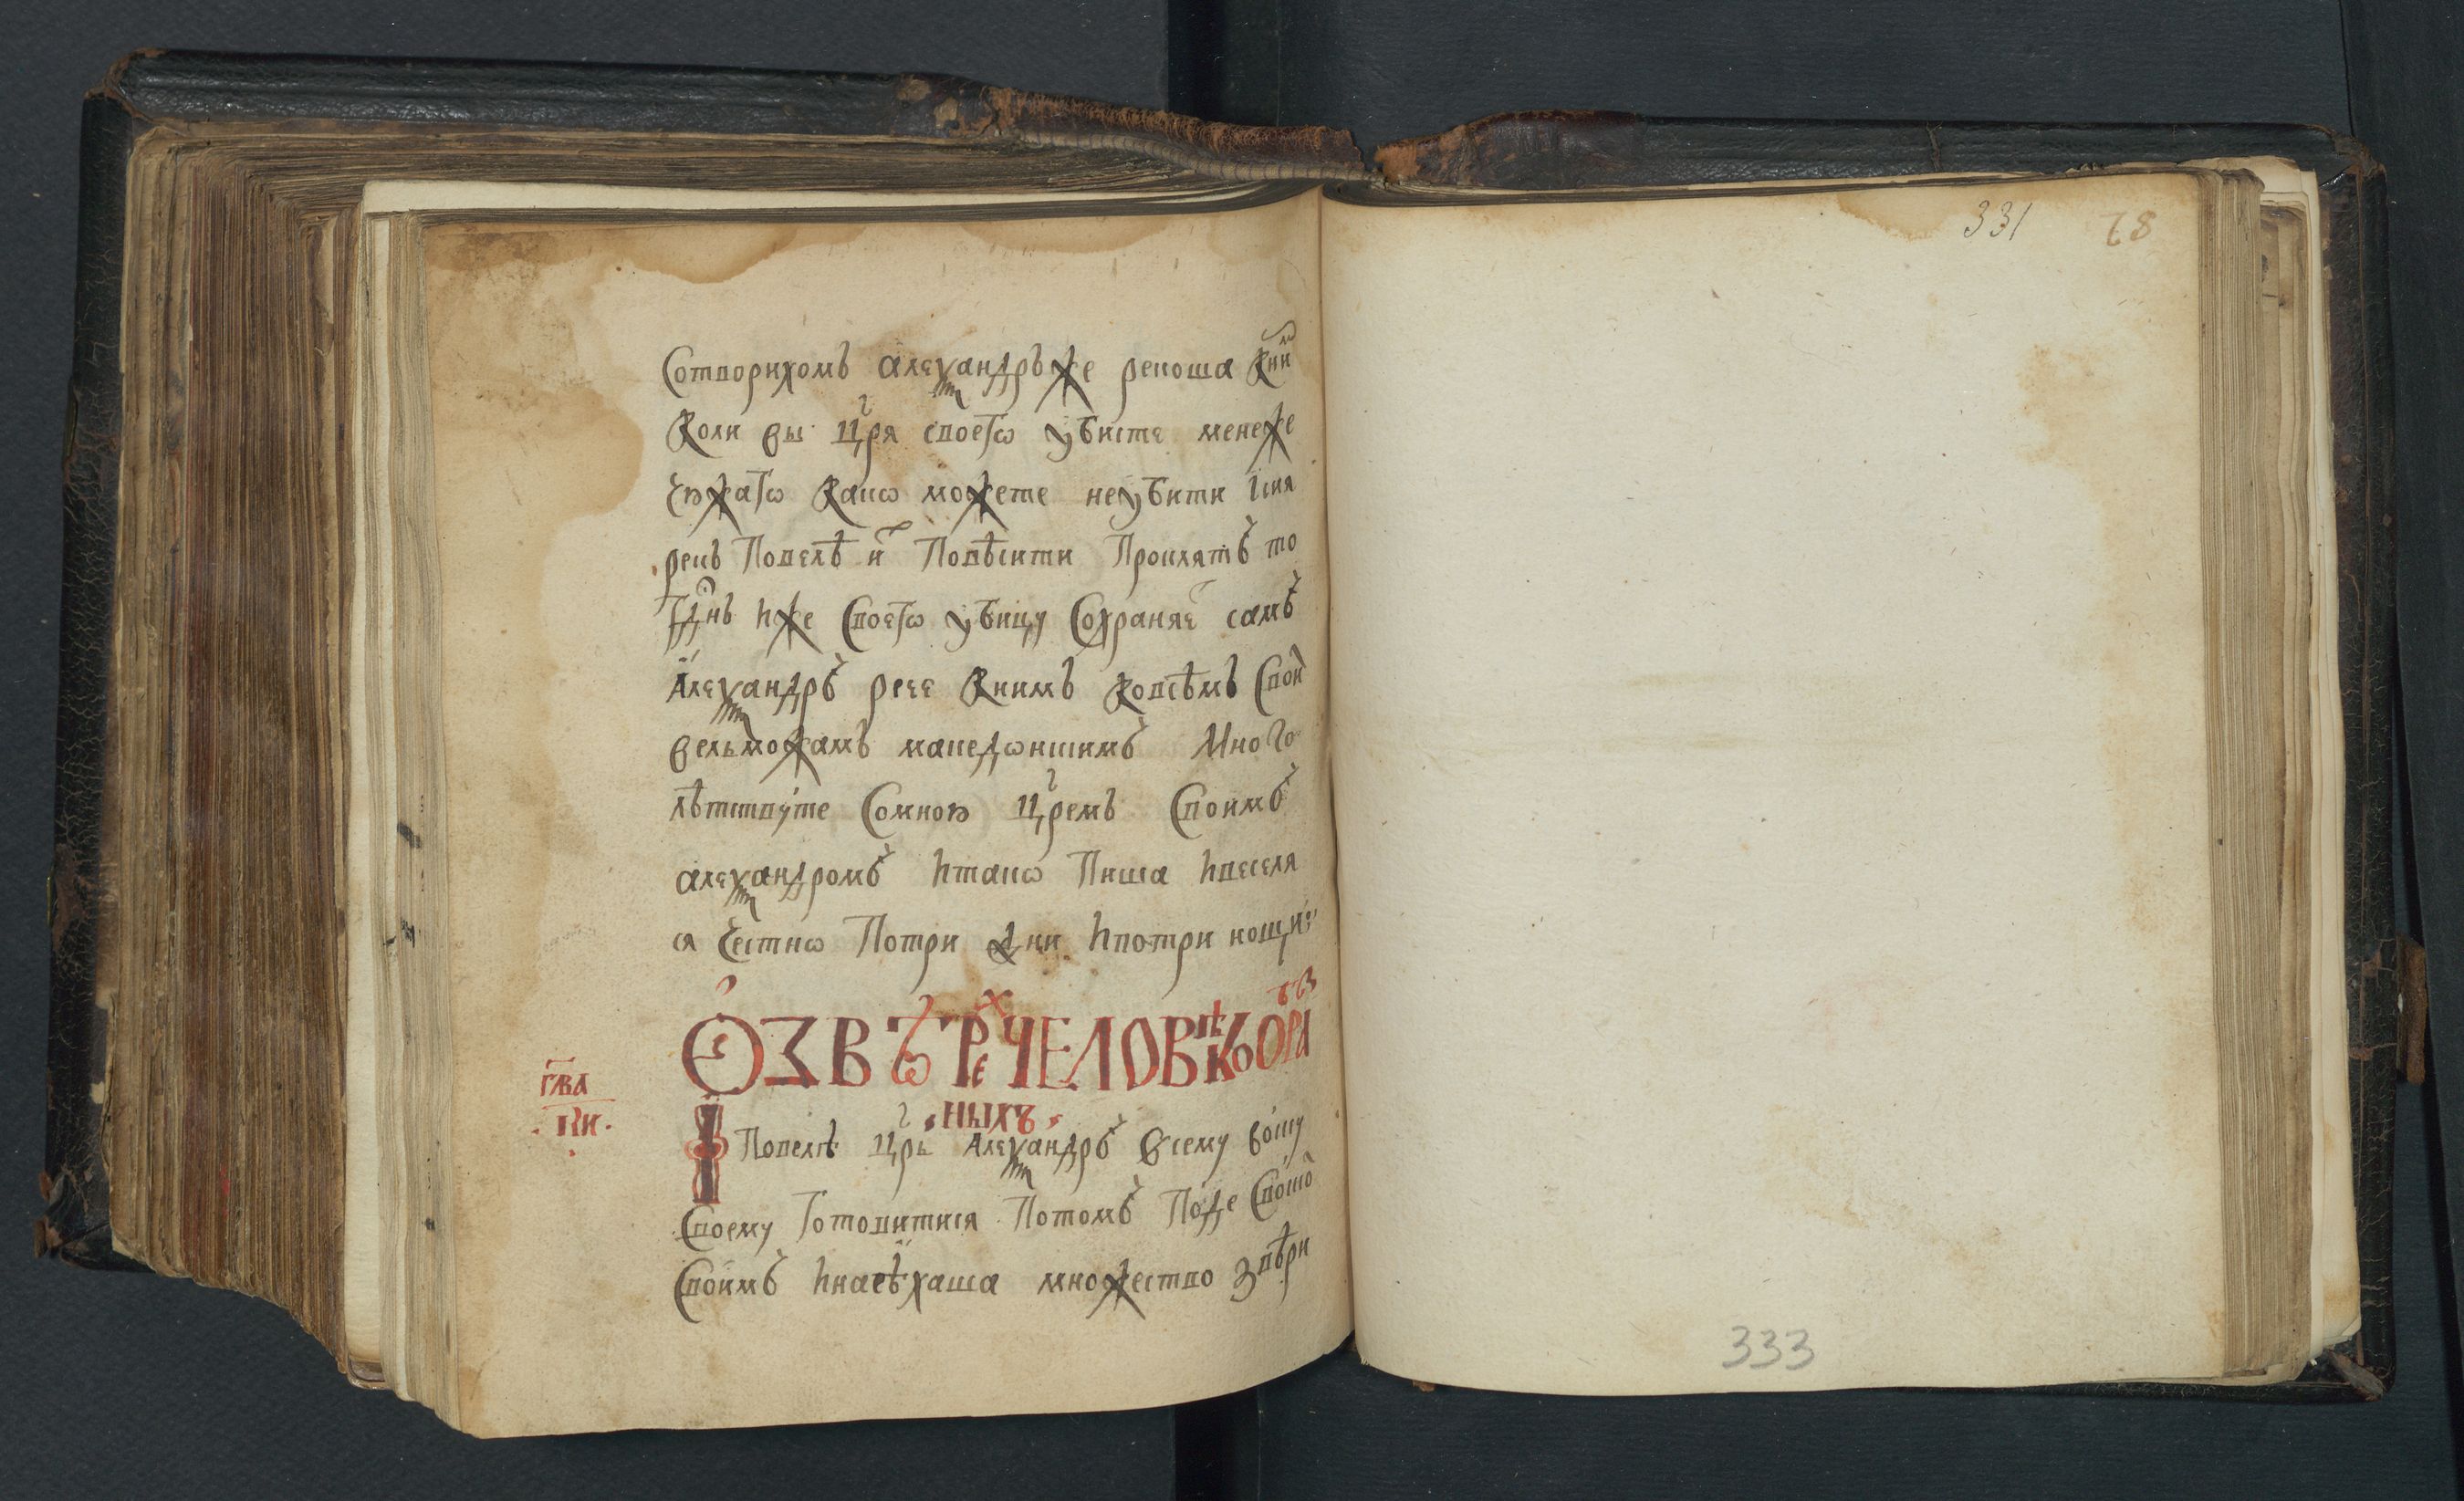 сотворихомъ алеѯандръже рекоша кни͏̆м
коли вы цр҃я своегѡ убисте менеже
чюжагѡ какѡ можете неубити ися
рекъ повелѣ и повѣсити проклятъ то
гднь иже своегѡ убицу сохраняе самъ
алеѯандръ рече книмъ ковсѣмъ свои
вельможамъ македѡнскимъ много
лѣтствуте сомною цр҃емъ своимъ
алеѯандромъ итакѡ пиша ивеселя
ся честнѡ потри дни ипотри нощи
331
78
ѾЗВѢРЕХЧЕЛОВѢКООБРАЗ
НЫХЪ
глва
КИ
Повелѣ цр҃ь алеѯандръ всему воску
своему готовитися потомъ поде своско
своимъ инаеѣхаша множество звѣри
333